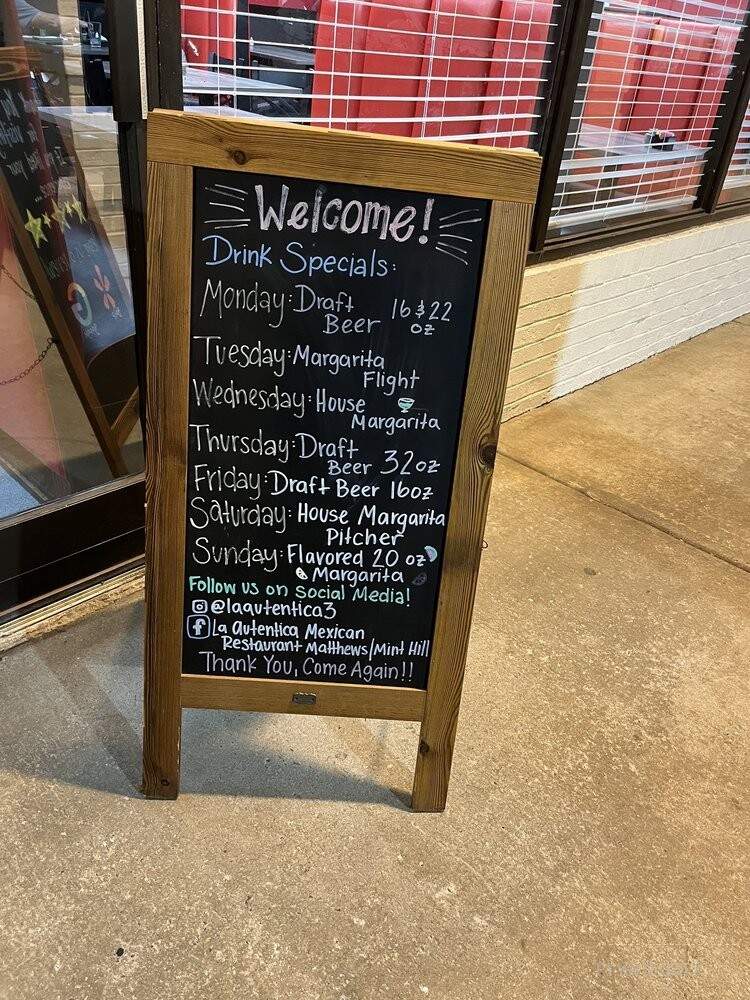 Welcome!
Drink Specials:
Monday: Draft Beer 16 & 22 oz
Tuesday: Margarita
Flight
Wednesday: House
Margarita
Thursday: Draft
Beer 32oz
Friday: Draft Beer 16oz
Saturday: House Margarita
Pitcher
Sunday: Flavored 20 oz
Margarita
Follow us on Social Media!
@laautentica3
La Autentica Mexican
Restaurant Matthews/Mint Hill
Thank You, Come Again!!